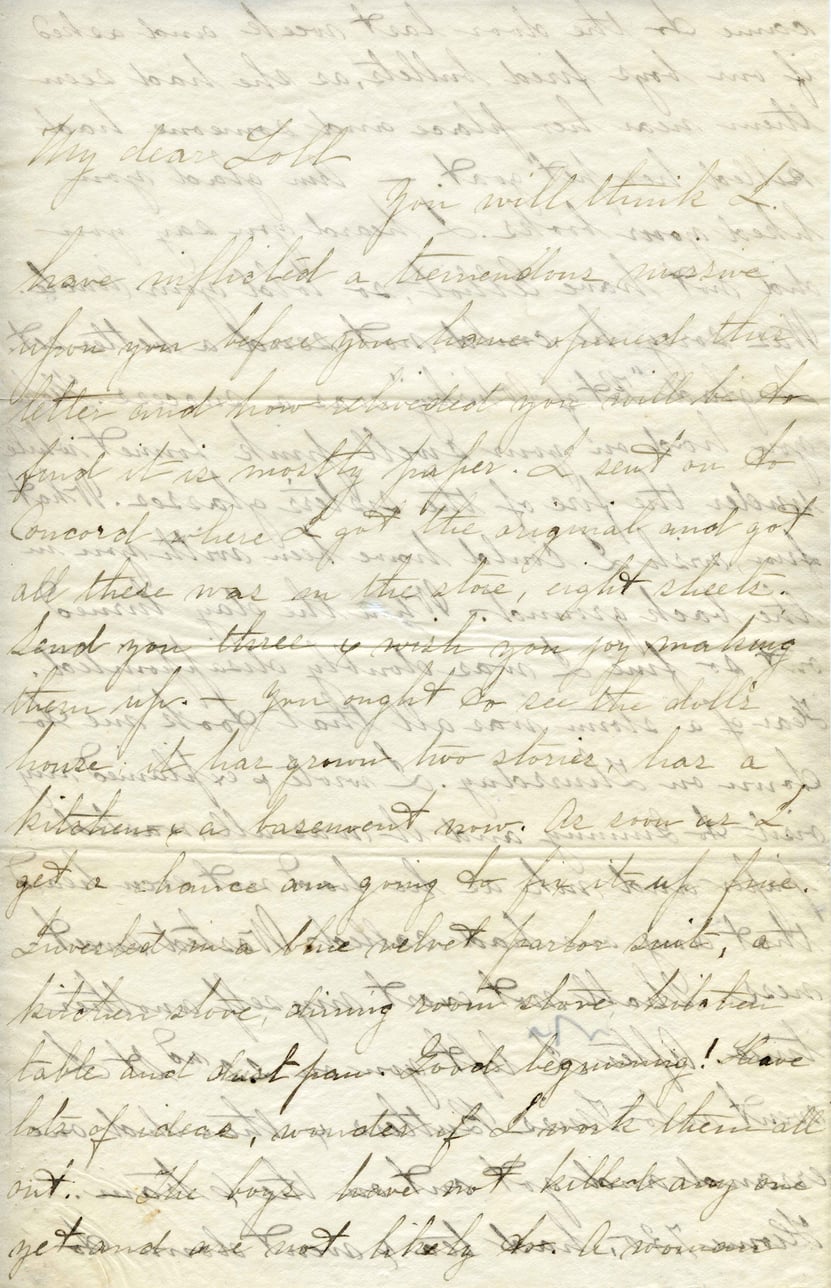 My dear Lott
You will think I
have inflicted a tremendous missive
upon you before you have opened this
letter and how relieved you will be to
find it is mostly paper. I sent on to
Concord where I got the original and got
all there was in the store, eight sheets.
Send you three & wish you joy making
them up. — You ought to see the doll's
house, it has grown two stories, has a
kitchen & a basement now. As soon as I
get a chance am going to fix it up fine.
Invested in a blue velvet parlor suit, a
kitchen stove, dining room stove, kitchen
table and dust pan. Good beginning! Have
lots of ideas, wonder if I work them all
out. — The boys have not killed any one
yet and are not likely to. A woman